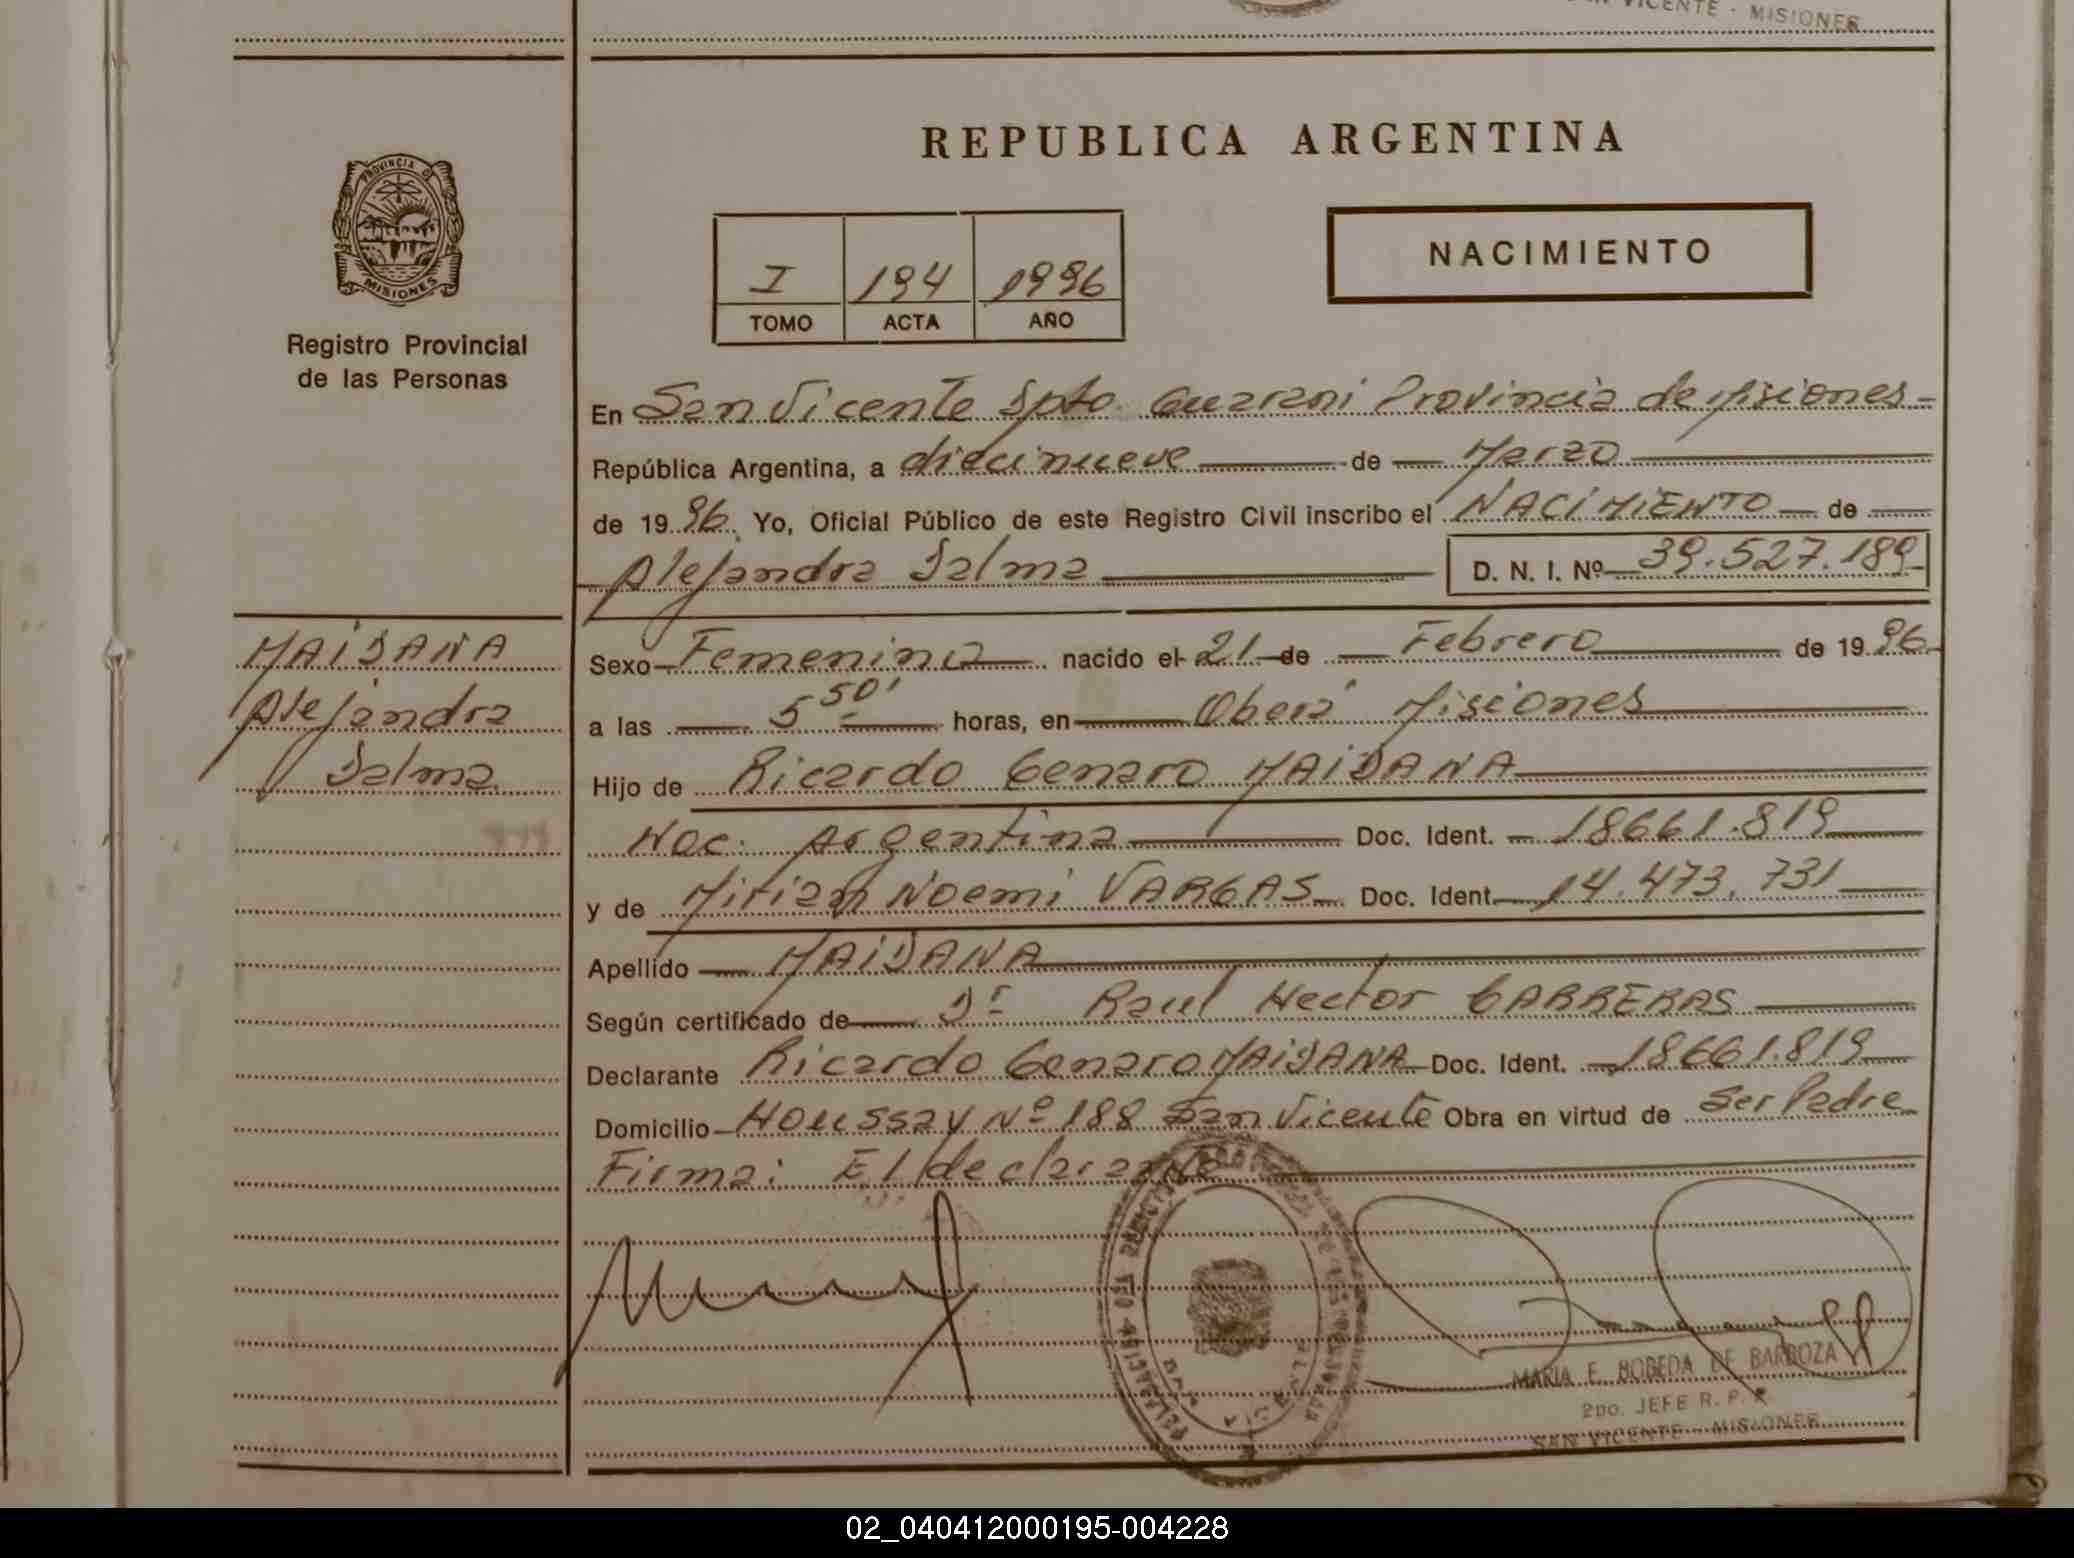 SAN VICENTE - MISIONES
REPUBLICA ARGENTINA
PROVINCIA D
MISIONES
Registro Provincial
de las Personas
I 194 1996
TOMO ACTA AÑO
NACIMIENTO
En San Vicente Dpto. Guarani Provincia de Misiones
República Argentina, a diecinueve de Marzo
de 1996. Yo, Oficial Público de este Registro Civil inscribo el NACIMIENTO de
Alejandra Dalma D. N. I. Nº 39.527.189
MAIDANA
Alejandra
Dalma
Sexo Femenino nacido el 21 de Febrero de 1996
a las 5 50' horas, en Oberá Misiones
Hijo de Ricardo Genaro MAIDANA
Nac. Argentina Doc. Ident. 18661.819
y de Miriam Noemi VARGAS Doc. Ident. 14.473.731
Apellido MAIDANA
Según certificado de Dr Raul Hector CARRERAS
Declarante Ricardo Genaro MAIDANA Doc. Ident. 18661.819
Domicilio Houssay Nº 188 San Vicente Obra en virtud de Ser Padre
Firma: El declarante
MARIA E. BOBEDA DE BARBOZA
2DO. JEFE R. P. P.
SAN VICENTE - MISIONES
02_040412000195-004228